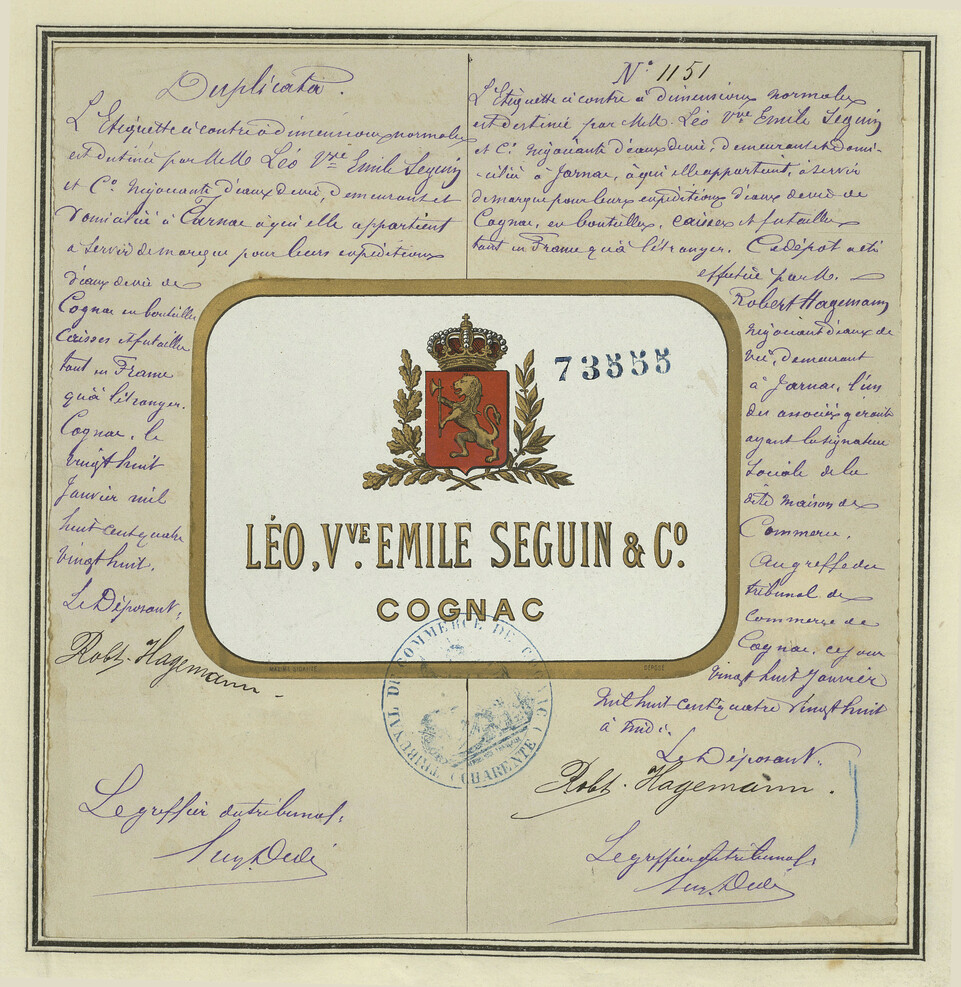 Duplicata.
L'Etiquette ci contre à dimensions normales
est destinée par MM Léo Vve Emile Seguin
et Co. Négociants d'eaux de vie, demeurant et
domicilié à Jarnac à qui elle appartient
à servir de marque pour leurs expéditions
d'eaux de vie de
Cognac en bouteilles
Caisses et futailles
tant en France
qu'à l'étranger.
Cognac, le
vingt huit
Janvier mil
huit cent quatre
vingt huit.
Le Déposant,
Robt. Hagemann
Le greffier du tribunal,
No 1151
L'Etiquette ci contre à dimensions normales
est destinée par MM. Léo Vve Emile Seguin
et Co. Négociants d'eaux de vie, demeurant et domi-
cilié à Jarnac, à qui elle appartient, à servir
de marque pour leurs expéditions d'eaux de vie de
Cognac, en bouteilles, caisses et futailles
tant en France qu'à l'étranger. Ce dépôt a été
effectué par M.
Robert Hagemann
négociant d'eaux de
vie, demeurant
à Jarnac, l'un
des associés gérants
ayant la signature
Sociale de la
dite maison de
Commerce.
Au greffe du
tribunal de
Commerce de
Cognac, ce jour
vingt huit Janvier
mil huit cent quatre vingt huit
à midi.
Le Déposant.
Robt. Hagemann.
Le greffier du tribunal,
73555
LÉO, VVE. EMILE SEGUIN & CO.
COGNAC
DÉPOSÉ
TRIBUNAL DE COMMERCE DE COGNAC
(CHARENTE)